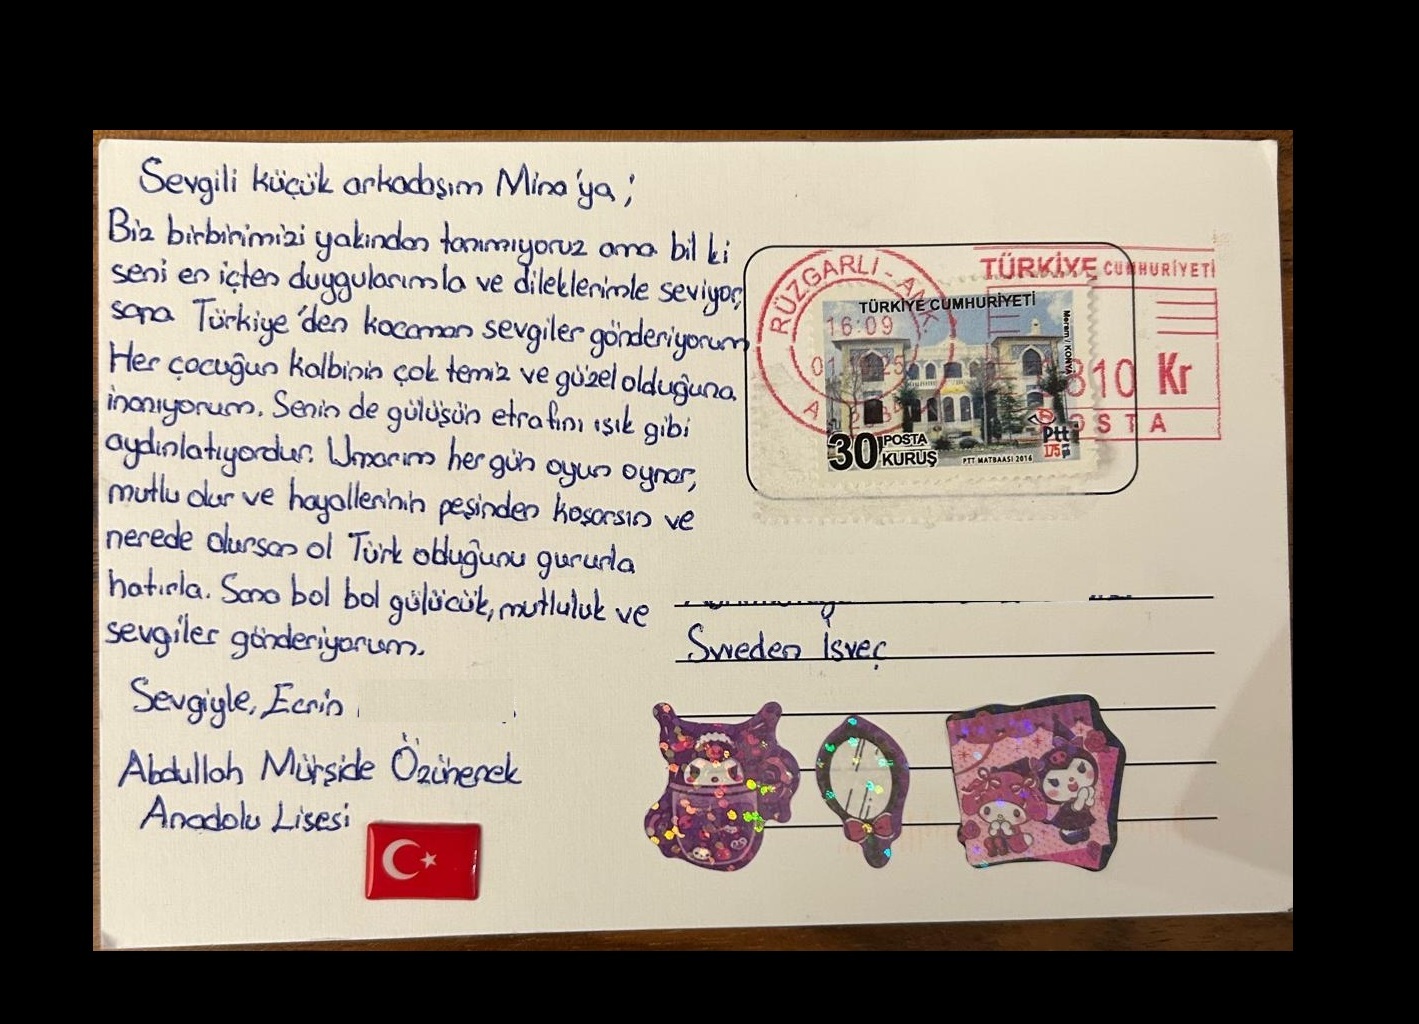 Sevgili küçük arkadaşım Mina'ya;
Biz birbirimizi yakından tanımıyoruz ama bil ki
seni en içten duygularımla ve dileklerimle seviyor,
sana Türkiye'den kocaman sevgiler gönderiyorum
Her çocuğun kalbinin çok temiz ve güzel olduğuna
inanıyorum. Senin de gülüşün etrafını ışık gibi
aydınlatıyordur. Umarım her gün oyun oynar,
mutlu olur ve hayallerinin peşinden koşarsın ve
nerede olursan ol Türk olduğunu gururla
hatırla. Sana bol bol gülücük, mutluluk ve
sevgiler gönderiyorum.
Sevgiyle, Ecrin
Abdullah Mürşide Özünenek
Anadolu Lisesi
RÜZGARLI - ANK
16:09
TÜRKİYE CUMHURİYETİ
810 Kr
POSTA
TÜRKİYE CUMHURİYETİ
Meram / KONYA
30 POSTA
KURUŞ
Ptt
175
PTT MATBAASI 2016
Sweden İsveç